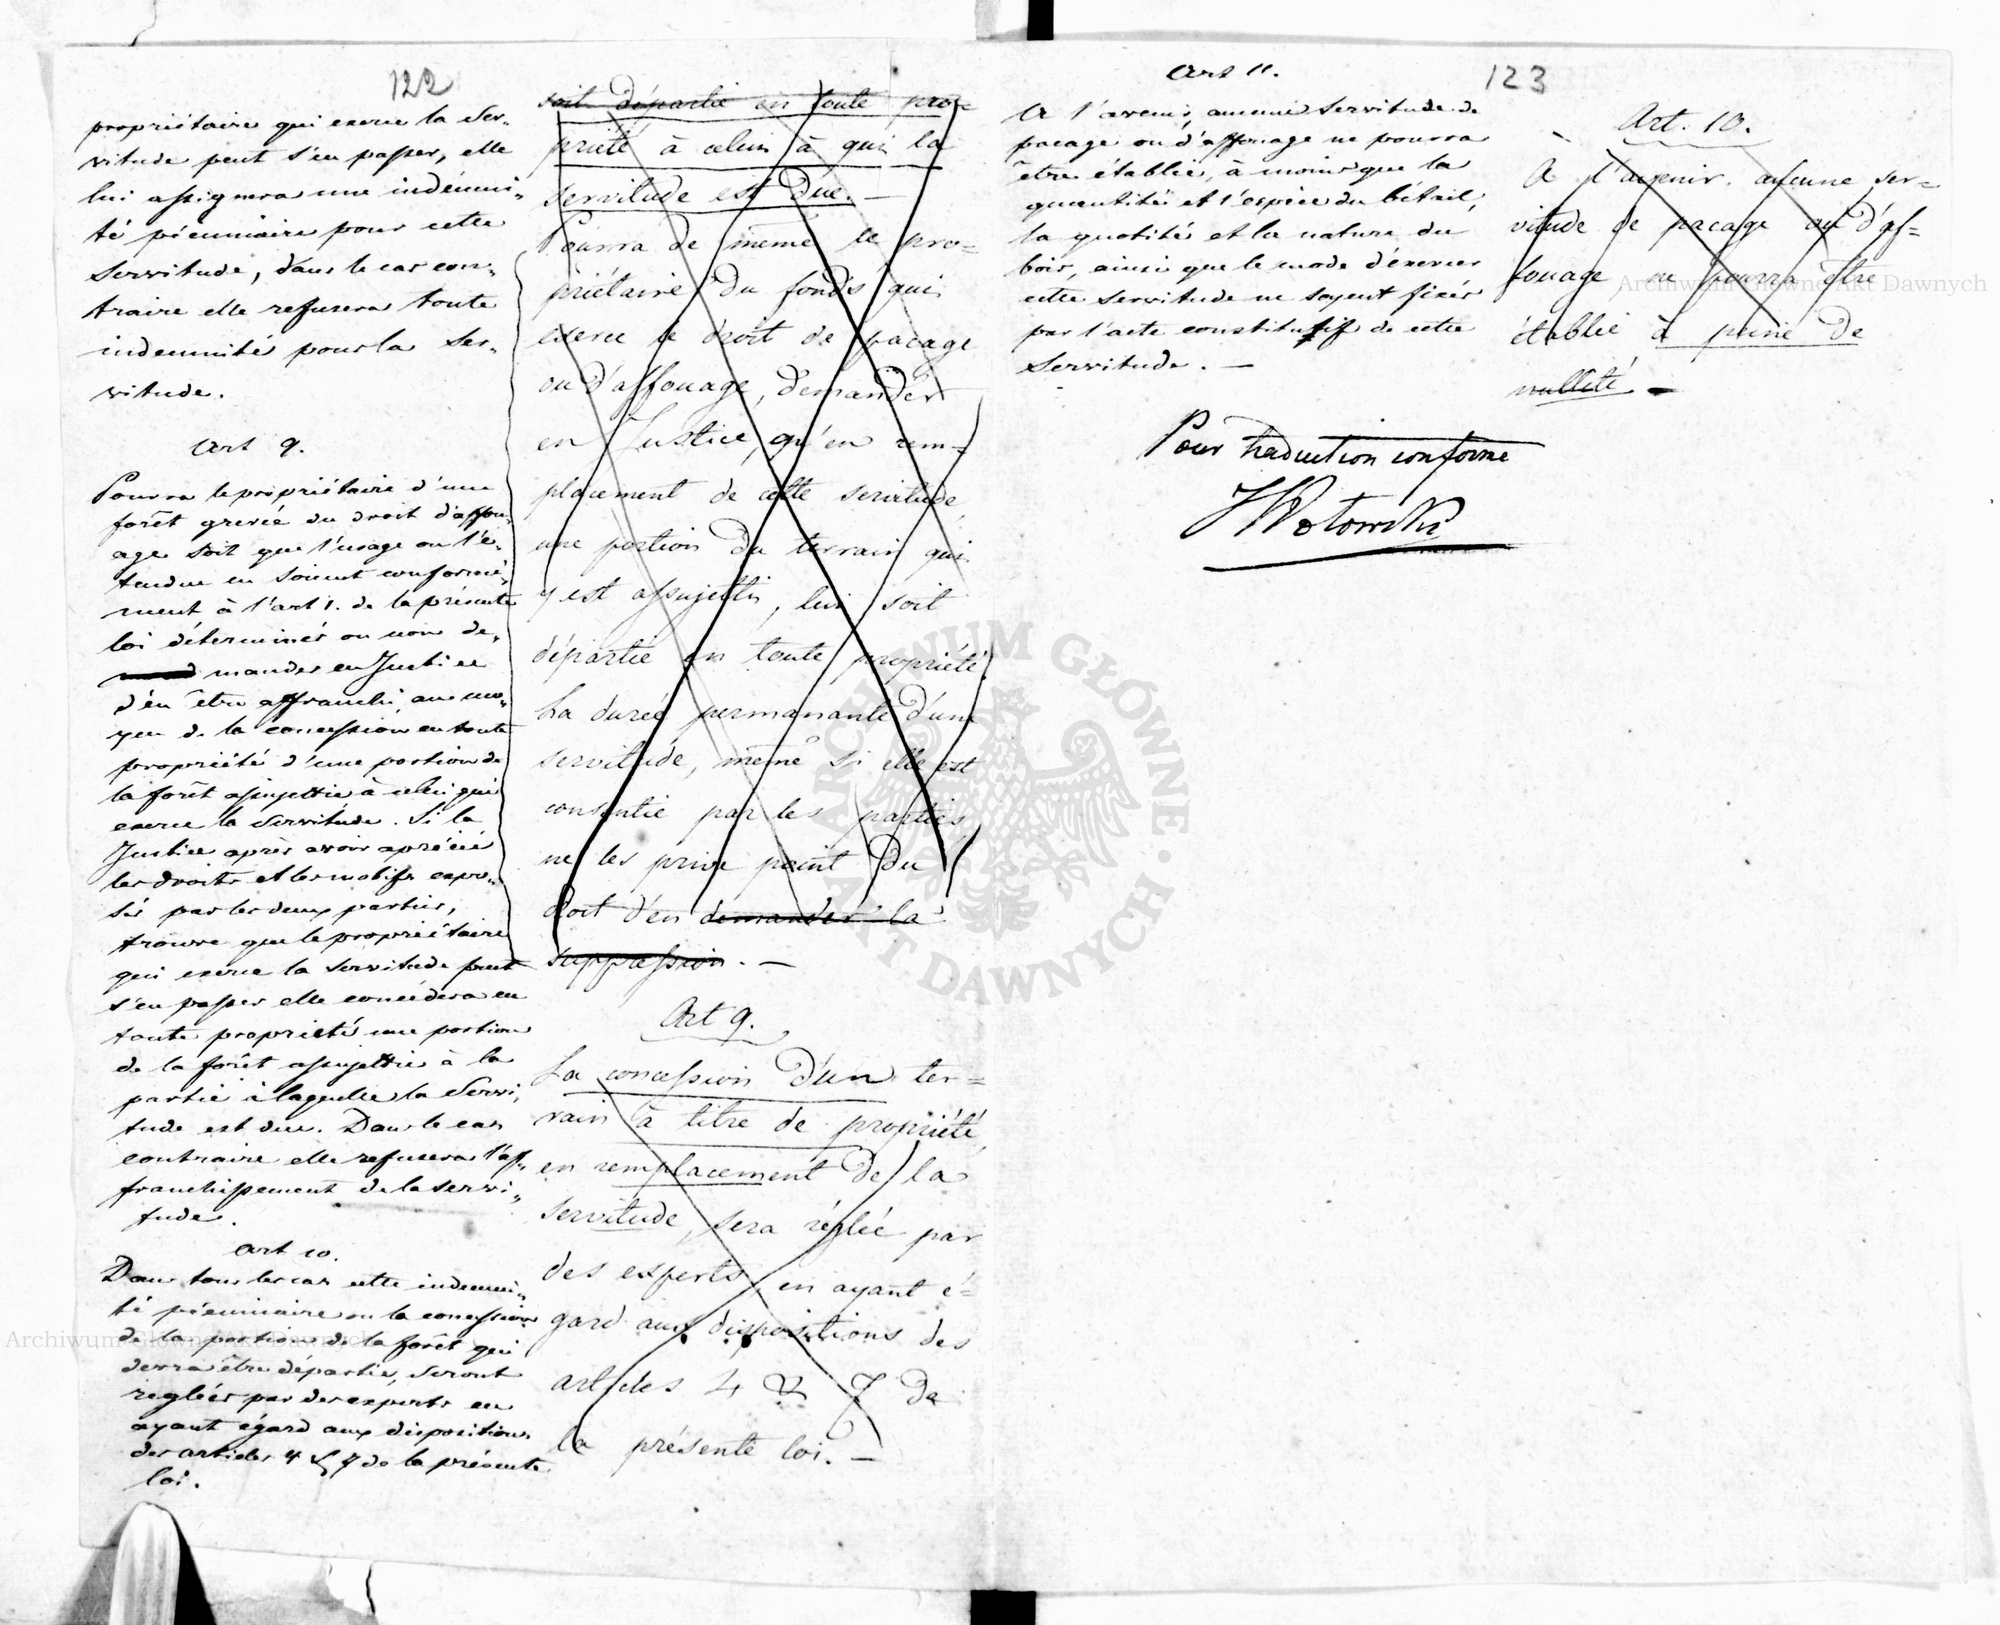 122
propriétaire qui exerce la Ser„
vitude peut s'en passer, elle
lui assignera une indemni„
té pécuniaire pour cette
Servitude, dans le cas con„
traire elle refusera toute
indemnité pour la Ser„
vitude.
Art 9.
Pourra le propriétaire d'une
forêt grevée du droit d'affou„
age soit que l'usage ou l'é„
tendue en soient conformé„
ment à l'art 1. de la présente
loi déterminés ou non de„
mander en Justice
d'en être affranchi, au mo„
yen de la concession en toute
propriété d'une portion de
la forêt assujettie à celui qui
exerce la Servitude. Si la
Justice après avoir aprécié
les droits et les motifs expo„
sés par les deux parties,
trouve que le propriétaire
qui exerce la Servitude peut
s'en passer elle concédera en
toute propriété une portion
de la forêt assujettie à la
partie à laquelle la Servi„
tude est due. Dans le cas
contraire elle refusera l'af„
franchissement de la servi„
tude.
Art 10.
Dans tous les cas cette indemni„
té pécuniaire ou la concession
de la portion de la forêt qui
devra être départie, seront
reglées par des experts en
ayant égard aux dispositions
des articles 4 & 7 de la présente
loi.
soit départie en toute pro=
priété à celui à qui la
servitude est due. —
Pourra de même le pro=
priétaire du fonds qui
exerce le droit de pacage
ou d'affouage, demander
en Justice, qu'en rem=
placement de cette servitude
une portion du terrain qui
y est assujetti, lui soit
départie en toute propriété.
La durée permanante d'une
servitude, même si elle est
consentie par les parties
ne les prive point du
droit d'en demander la
suppression. —
Art 9.
La concession d'un ter=
rain à titre de propriété,
en remplacement de la
servitude, sera réglée par
des experts, en ayant é=
gard aux dispositions des
articles 4 & 7 de
la présente loi. —
Art 11.
A l'avenir, aucune Servitude de
pacage ou d'affouage ne pourra
être établie, à moins que la
quantité et l'espèce du bétail,
la quotité et la nature du
bois, ainsi que le mode d'exercer
cette servitude ne soyent fixés
par l'acte constitutif de cette
Servitude. —
123
Art. 10.
A l'avenir, aucune ser=
vitude de pacage ou d'af=
fouage ne pourra être
établie à peine de
nullité —
Pour traduction conforme
ARCHIWUM GŁÓWNE AKT DAWNYCH
Archiwum Główne Akt Dawnych
Archiwum Główne Akt Dawnych